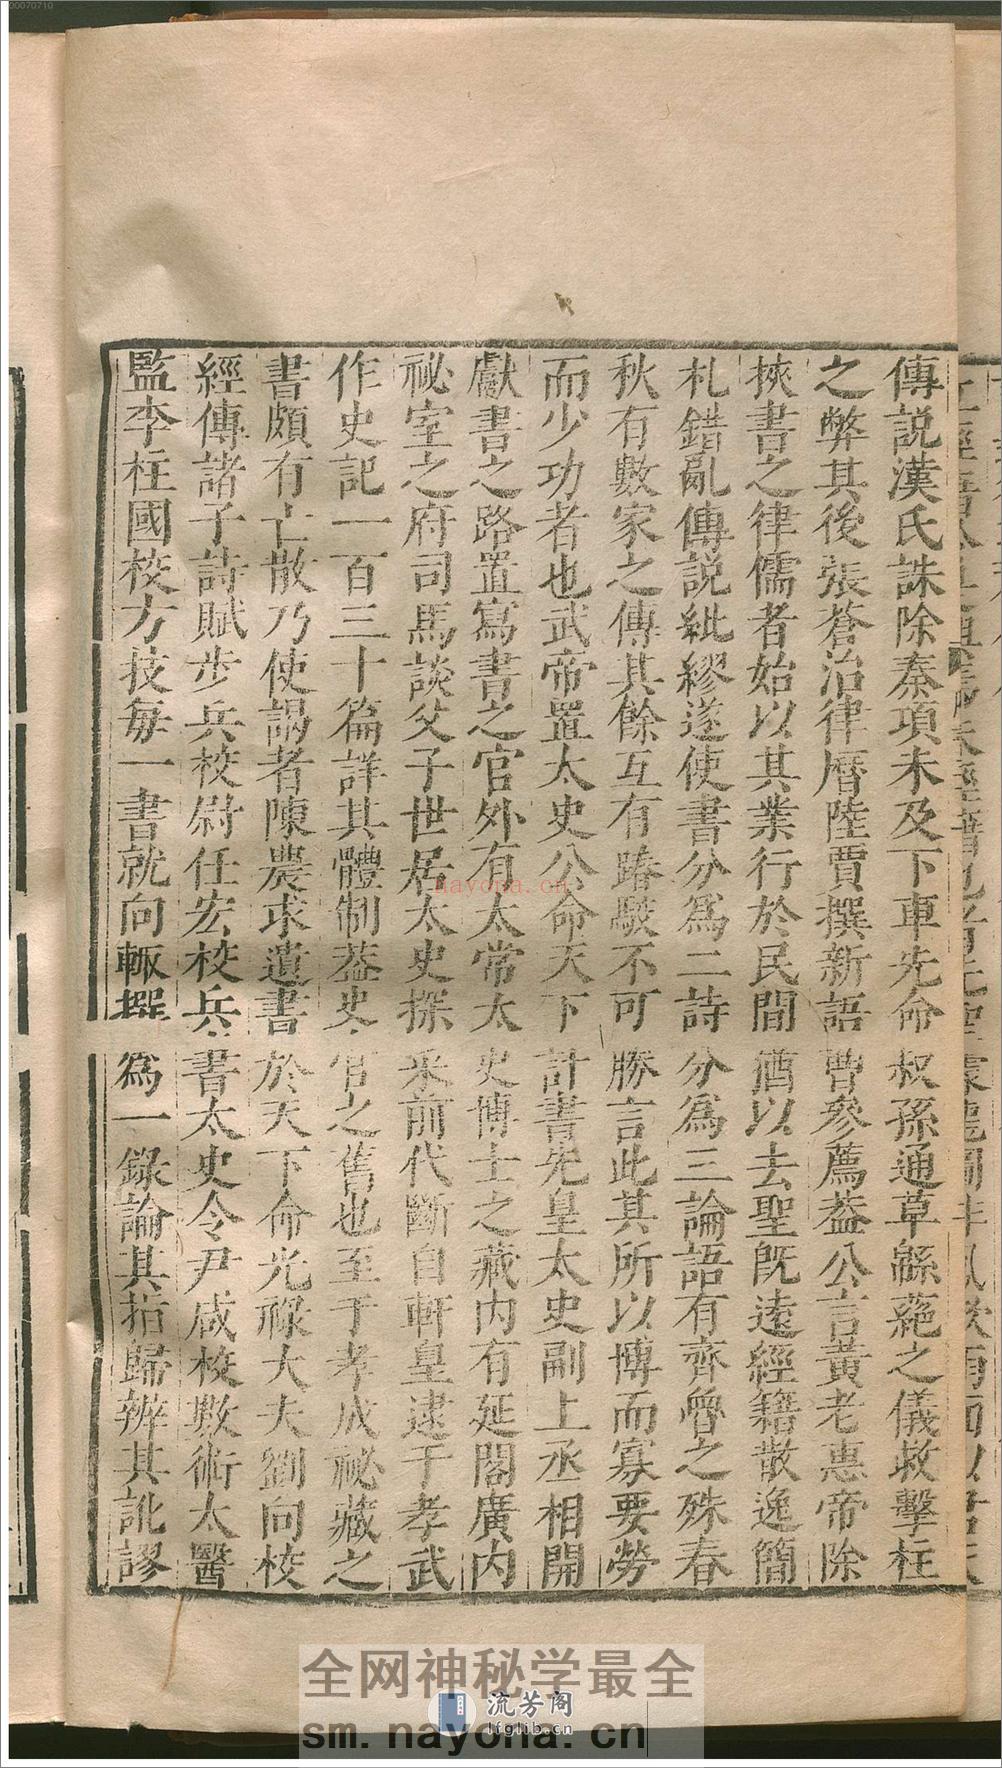 傳說漢氏誅除秦項未及下車先命叔孫通草緜蕝之儀救擊柱
之弊其後張蒼治律曆陸賈撰新語曹參薦葢公言黃老惠帝除
挾書之律儒者始以其業行於民間猶以去聖旣遠經籍散逸簡
札錯亂傳說紕繆遂使書分爲二詩分爲三論語有齊魯之殊春
秋有數家之傳其餘互有踳駁不可勝言此其所以博而寡要勞
而少功者也武帝置太史公命天下計書先皇太史副上丞相開
獻書之路置寫書之官外有太常太史博士之藏内有延閣廣内
祕室之府司馬談父子世居太史探采前代斷自軒皇逮于孝武
作史記一百三十篇詳其體制葢史官之舊也至于孝成祕藏之
書頗有亡散乃使謁者陳農求遺書於天下命光祿大夫劉向校
經傳諸子詩賦步兵校尉任宏校兵書太史令尹咸校數術太醫
監李柱國校方技每一書就向輙撰爲一錄論其指歸辨其訛謬
nayona.cn
全网神秘学最全
流芳阁
lfglib.cn
sm.nayona.cn
00070710